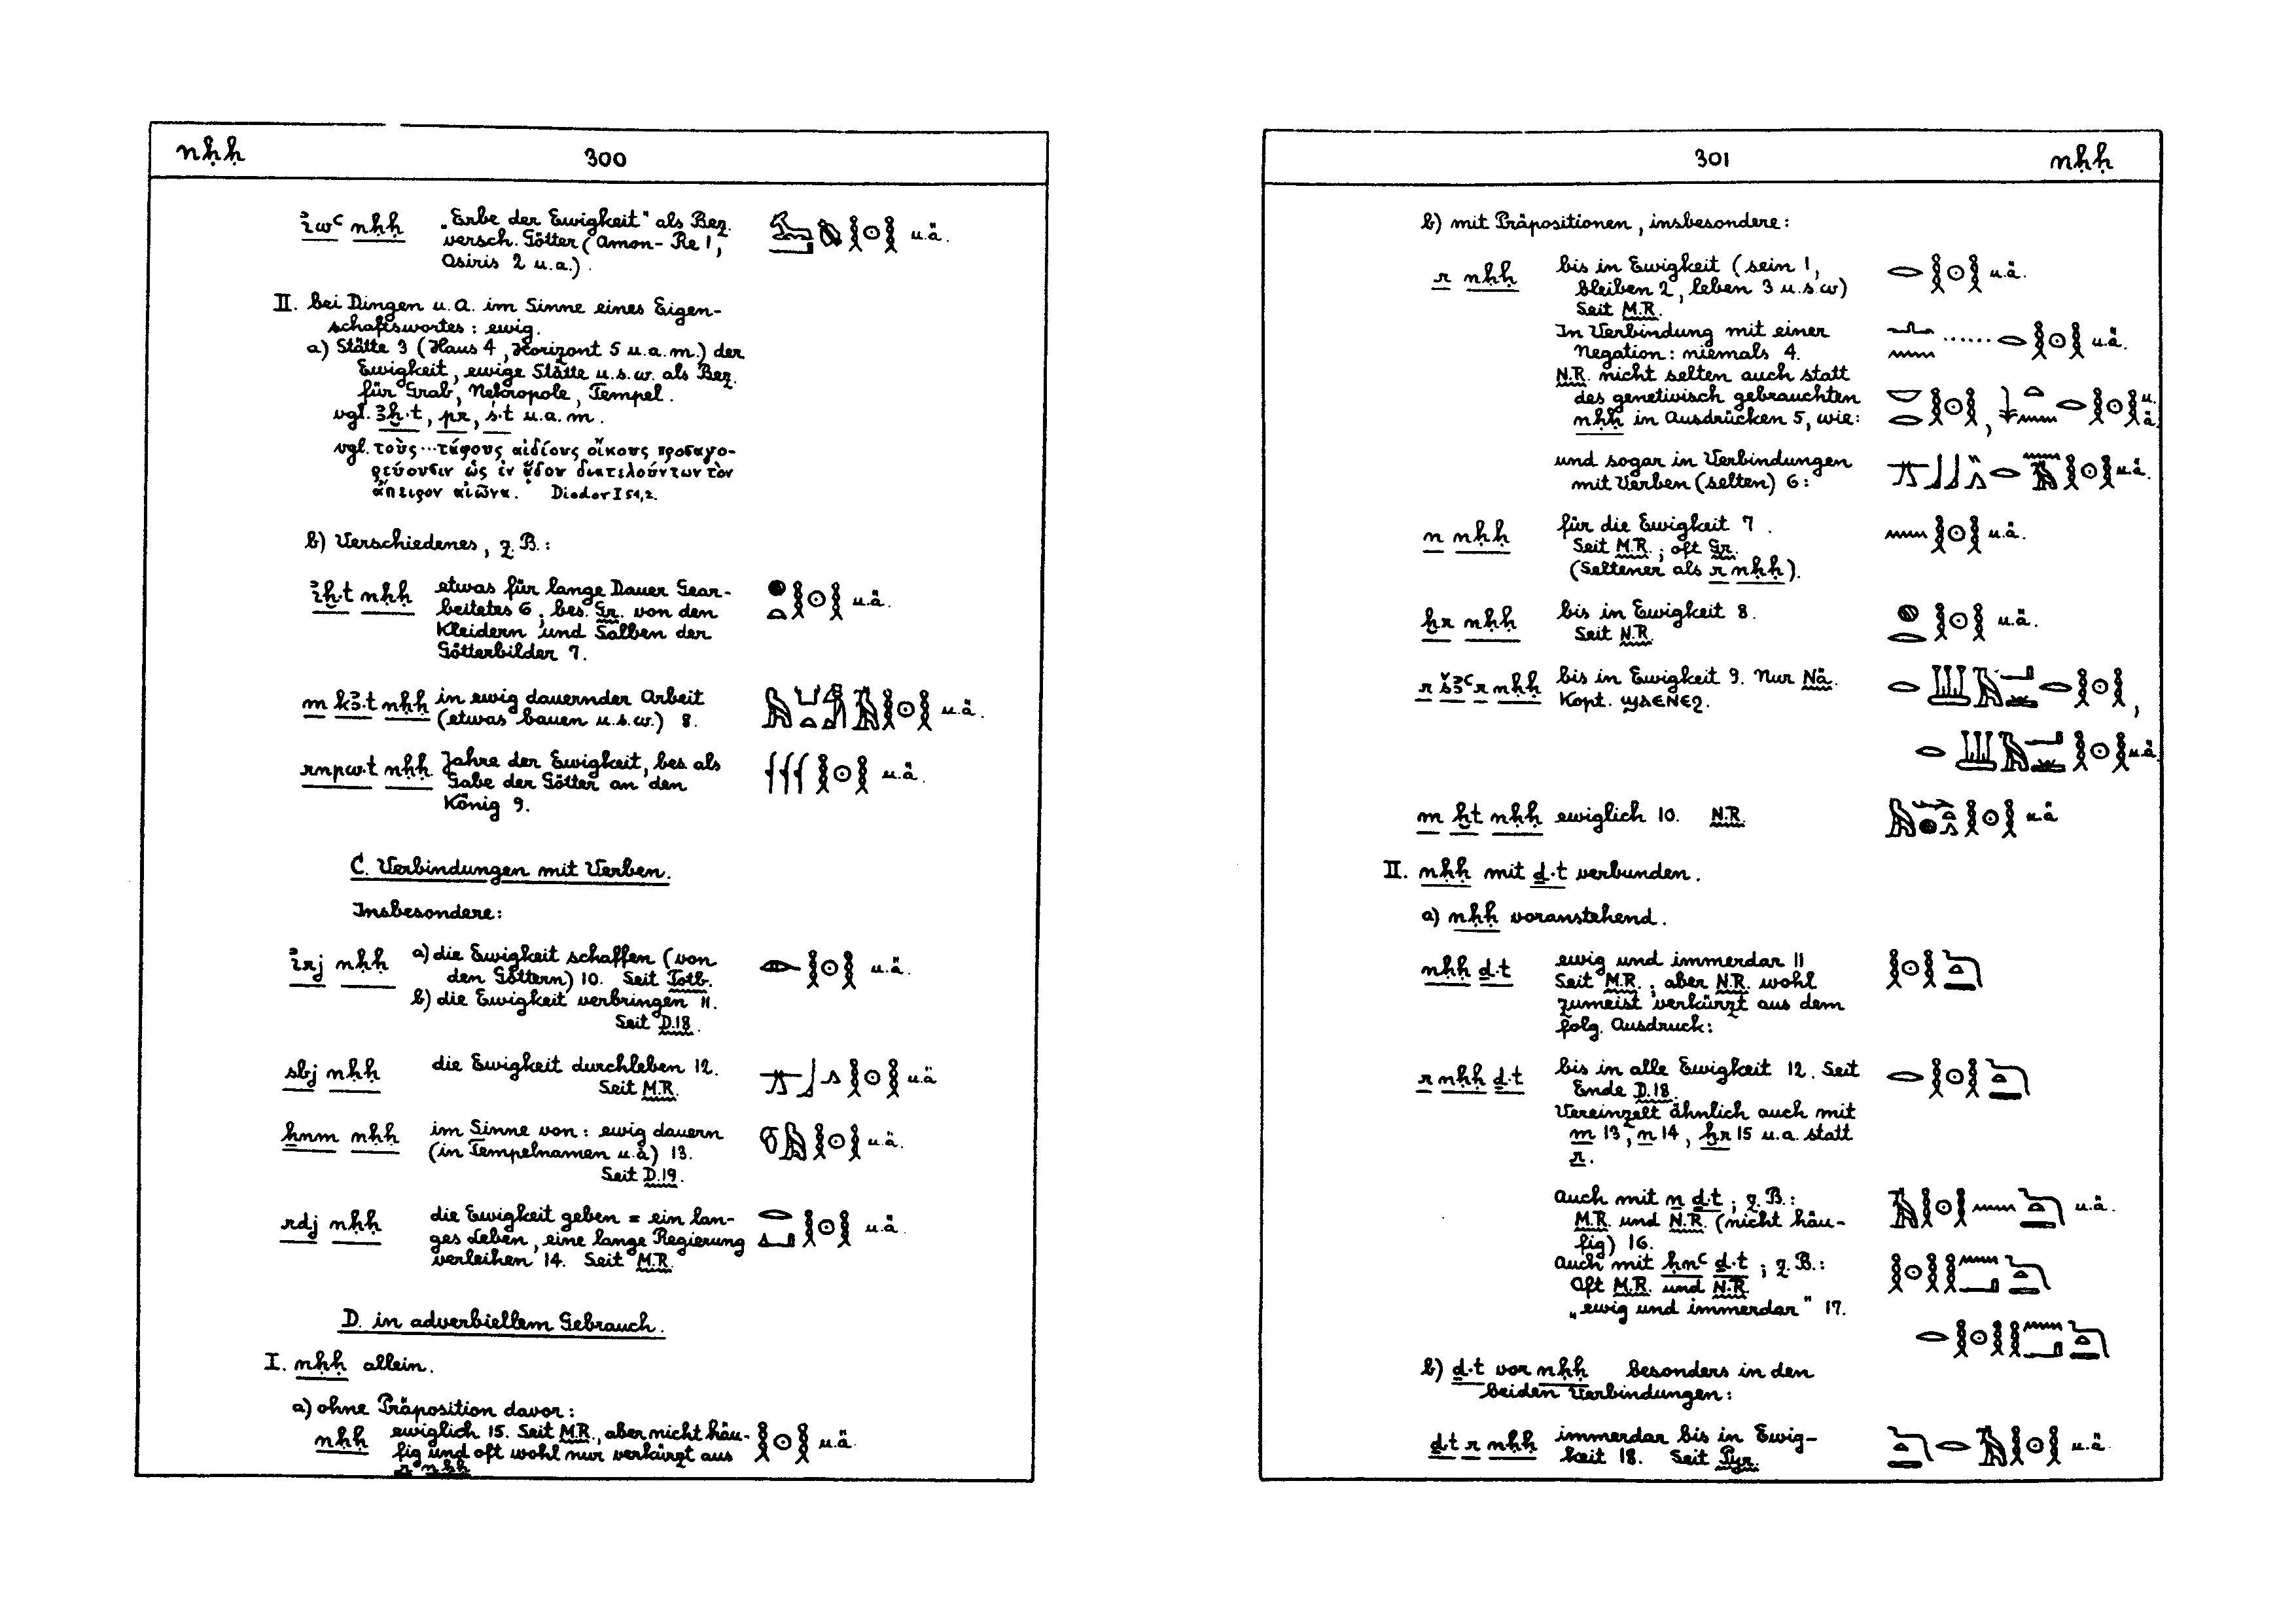 nḥḥ 300
ı͗wꜥ nḥḥ „Erbe der Ewigkeit“ als Bez.
versch. Götter (Amon-Re 1,
Osiris 2 u.a.). u.ä.
II. bei Dingen u.a. im Sinne eines Eigen-
schaftswortes: ewig.
a) Stätte 3 (Haus 4, Horizont 5 u.a.m.) der
Ewigkeit, ewige Stätte u.s.w. als Bez.
für Grab, Nekropole, Tempel.
vgl. ꜣḫ·t, pr, ś·t u.a.m.
vgl. τοὺς ··· τάφους αἰδίους οἴκους προσαγο-
ρεύουσιν ὡς ἐν ᾅδου διατελούντων τὸν
ἄπειρον αἰῶνα. Diodor I 51,2.
b) Verschiedenes, z.B.:
ı͗ḫ·t nḥḥ etwas für lange Dauer Gear-
beitetes 6; bes. Gr. von den u.ä.
Kleidern und Salben der
Götterbilder 7.
m kꜣ·t nḥḥ in ewig dauernder Arbeit
(etwas bauen u.s.w.) 8. u.ä.
rnpw·t nḥḥ Jahre der Ewigkeit, bes. als
Gabe der Götter an den u.ä.
König 9.
C. Verbindungen mit Verben.
Insbesondere:
ı͗rj nḥḥ a) die Ewigkeit schaffen (von
den Göttern) 10. Seit Totb. u.ä.
b) die Ewigkeit verbringen 11.
Seit D.18.
sbj nḥḥ die Ewigkeit durchleben 12. u.ä
Seit M.R.
ẖnm nḥḥ im Sinne von: ewig dauern
(in Tempelnamen u.ä) 13. u.ä.
Seit D.19.
rdj nḥḥ die Ewigkeit geben = ein lan-
ges Leben, eine lange Regierung u.ä.
verleihen 14. Seit M.R.
D. in adverbiellem Gebrauch.
I. nḥḥ allein.
a) ohne Präposition davor:
nḥḥ ewiglich 15. Seit M.R., aber nicht häu- u.ä.
fig und oft wohl nur verkürzt aus
r nḥḥ
301 nḥḥ
b) mit Präpositionen, insbesondere:
r nḥḥ bis in Ewigkeit (sein 1, u.ä.
bleiben 2, leben 3 u.s.w)
Seit M.R.
In Verbindung mit einer
Negation: niemals 4. u.ä.
N.R. nicht selten auch statt
des genetivisch gebrauchten u.
nḥḥ in Ausdrücken 5, wie: , ä.
und sogar in Verbindungen
mit Verben (selten) 6: u.ä.
n nḥḥ für die Ewigkeit 7. u.ä.
Seit M.R.; oft Gr.
(Seltener als r nḥḥ).
ḫr nḥḥ bis in Ewigkeit 8. u.ä.
Seit N.R.
r šꜣꜥ r nḥḥ bis in Ewigkeit 9. Nur Nä.
Kopt. ϣⲁⲉⲛⲉϩ. ,
u.ä.
m ḫt nḥḥ ewiglich 10. N.R. u.ä
II. nḥḥ mit ḏ·t verbunden.
a) nḥḥ voranstehend.
nḥḥ ḏ·t ewig und immerdar 11
Seit M.R.; aber N.R. wohl
zumeist verkürzt aus dem
folg. Ausdruck:
r nḥḥ ḏ·t bis in alle Ewigkeit 12. Seit
Ende D.18.
Vereinzelt ähnlich auch mit
m 13, n 14, ḫr 15 u.a. statt
r.
Auch mit n ḏ·t; z.B.:
M.R. und N.R. (nicht häu- u.ä.
fig) 16.
Auch mit ḥnꜥ ḏ·t; z.B.:
Oft M.R. und N.R.
„ewig und immerdar“ 17.
b) ḏ·t vor nḥḥ besonders in den
beiden Verbindungen:
ḏ·t r nḥḥ immerdar bis in Ewig- u.ä.
keit 18. Seit Pyr.